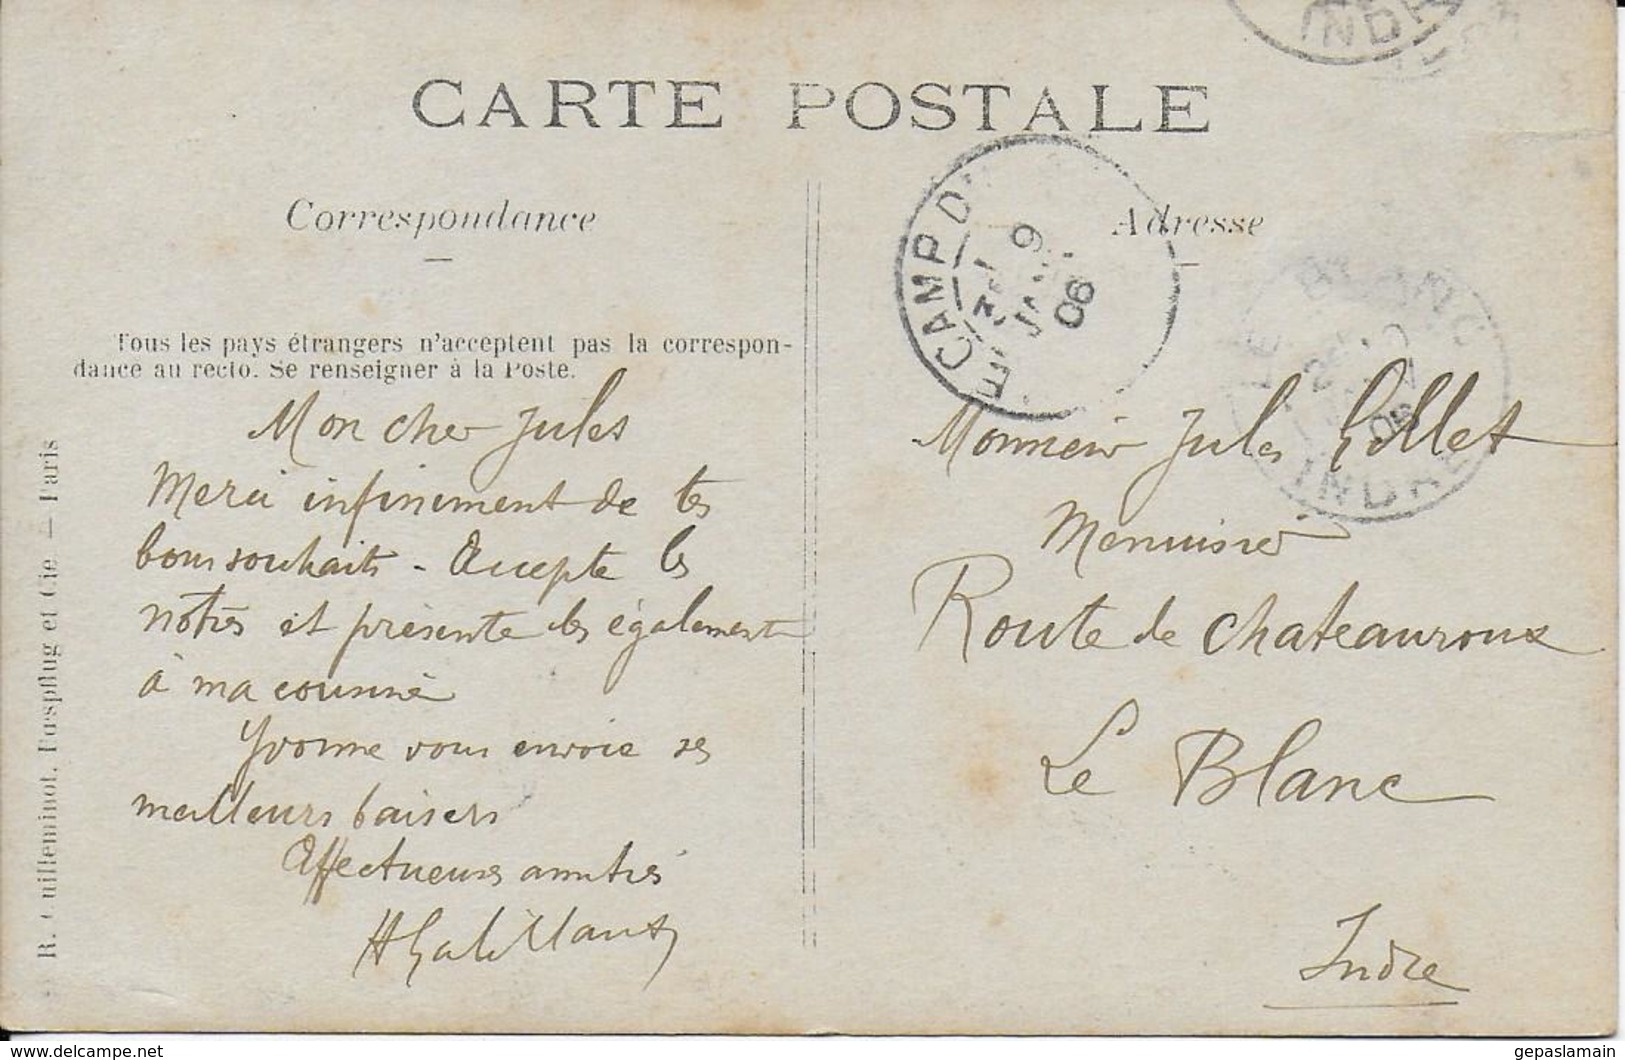 CARTE POSTALE
Correspondance
Tous les pays étrangers n'acceptent pas la correspon-
dance au recto. Se renseigner à la Poste.
Mon cher Jules
Merci infiniment de tes
bons souhaits - Accepte les
notres et présente les également
à ma cousine
Yvonne vous envoie ses
meilleurs baisers
Affectueuses amitiés
R. Guilleminot, Bœspflug et Cie — Paris
Adresse
Monsieur Jules Gillet
Menuisier
Route de Chateauroux
Le Blanc
Indre
CAMP D
9
JANV
06
LE BLANC
06
INDRE
INDR
delcampe.net
gepaslamain